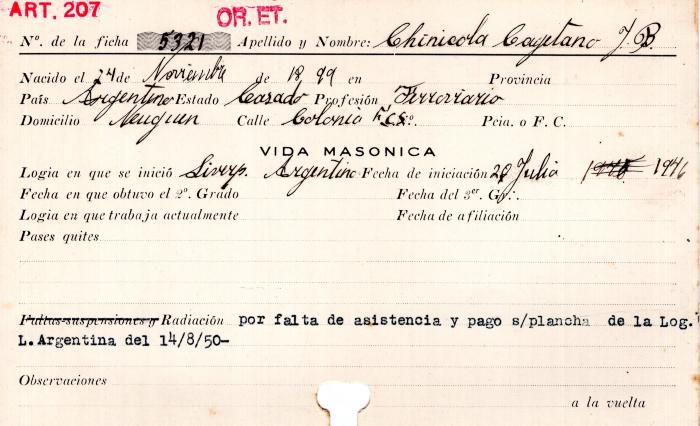 ART. 207
OR. ET.
Nº. de la ficha 5321 Apellido y Nombre: Chinicola Cayetano J. B.
Nacido el 24 de Noviembre de 1899 en Provincia
País Argentino Estado Casado Profesión Ferroviario
Domicilio Neuquen Calle Colonia F.C.S. Nº. Pcia. o F. C.
VIDA MASONICA
Logia en que se inició Argentino Fecha de iniciación Julio 1946
Fecha en que obtuvo el 2º. Grado Fecha del 3er. Gr.·.
Logia en que trabaja actualmente Fecha de afiliación
Pases quites
Faltas suspensiones y Radiación por falta de asistencia y pago s/plancha de la Log.
L. Argentina del 14/8/50-
Observaciones
a la vuelta